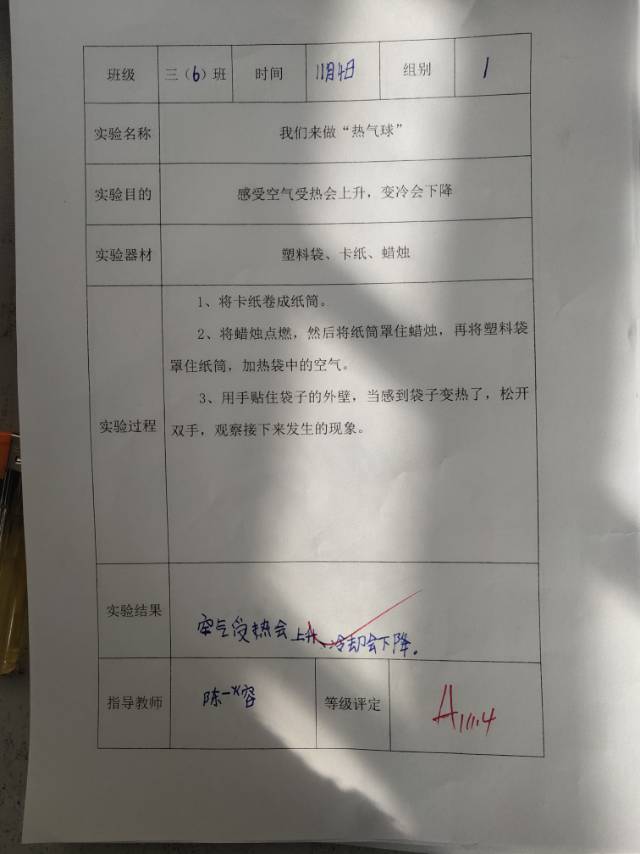 班级 三（6）班 时间 11月4日 组别 1
实验名称 我们来做“热气球”
实验目的 感受空气受热会上升，变冷会下降
实验器材 塑料袋、卡纸、蜡烛
实验过程
1、将卡纸卷成纸筒。
2、将蜡烛点燃，然后将纸筒罩住蜡烛，再将塑料袋
罩住纸筒，加热袋中的空气。
3、用手贴住袋子的外壁，当感到袋子变热了，松开
双手，观察接下来发生的现象。
实验结果
空气受热会上升、冷却会下降.
指导教师 陈一 容 等级评定 A 11.4